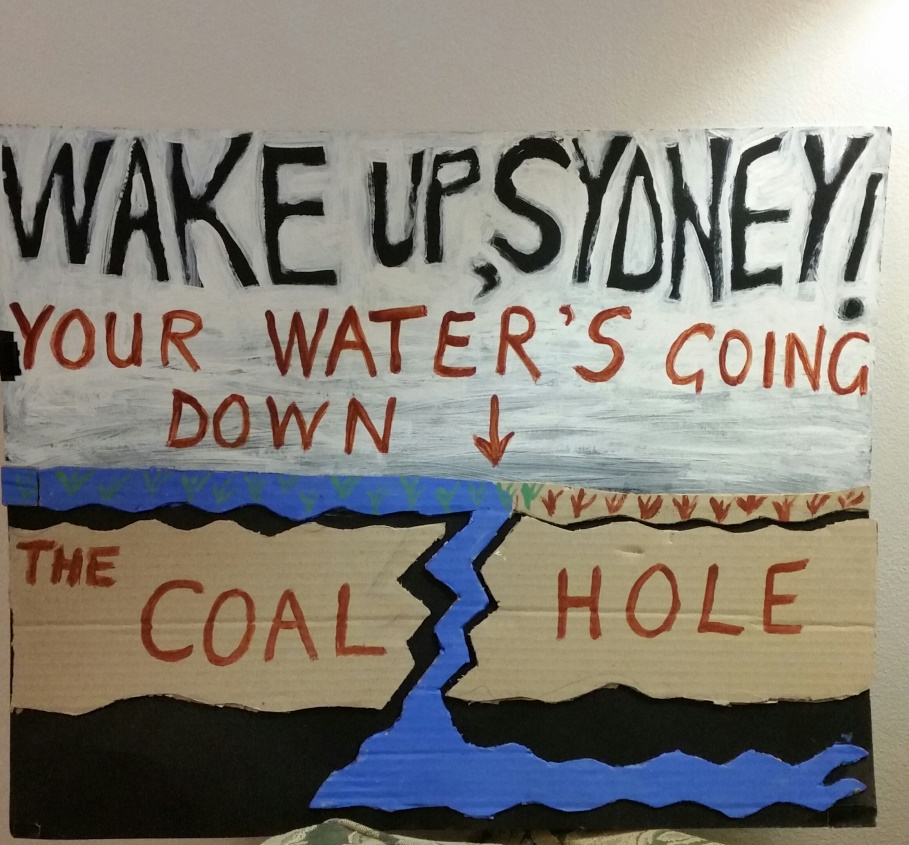 WAKE UP, SYDNEY!
YOUR WATER'S GOING
DOWN ↓
THE
COAL HOLE